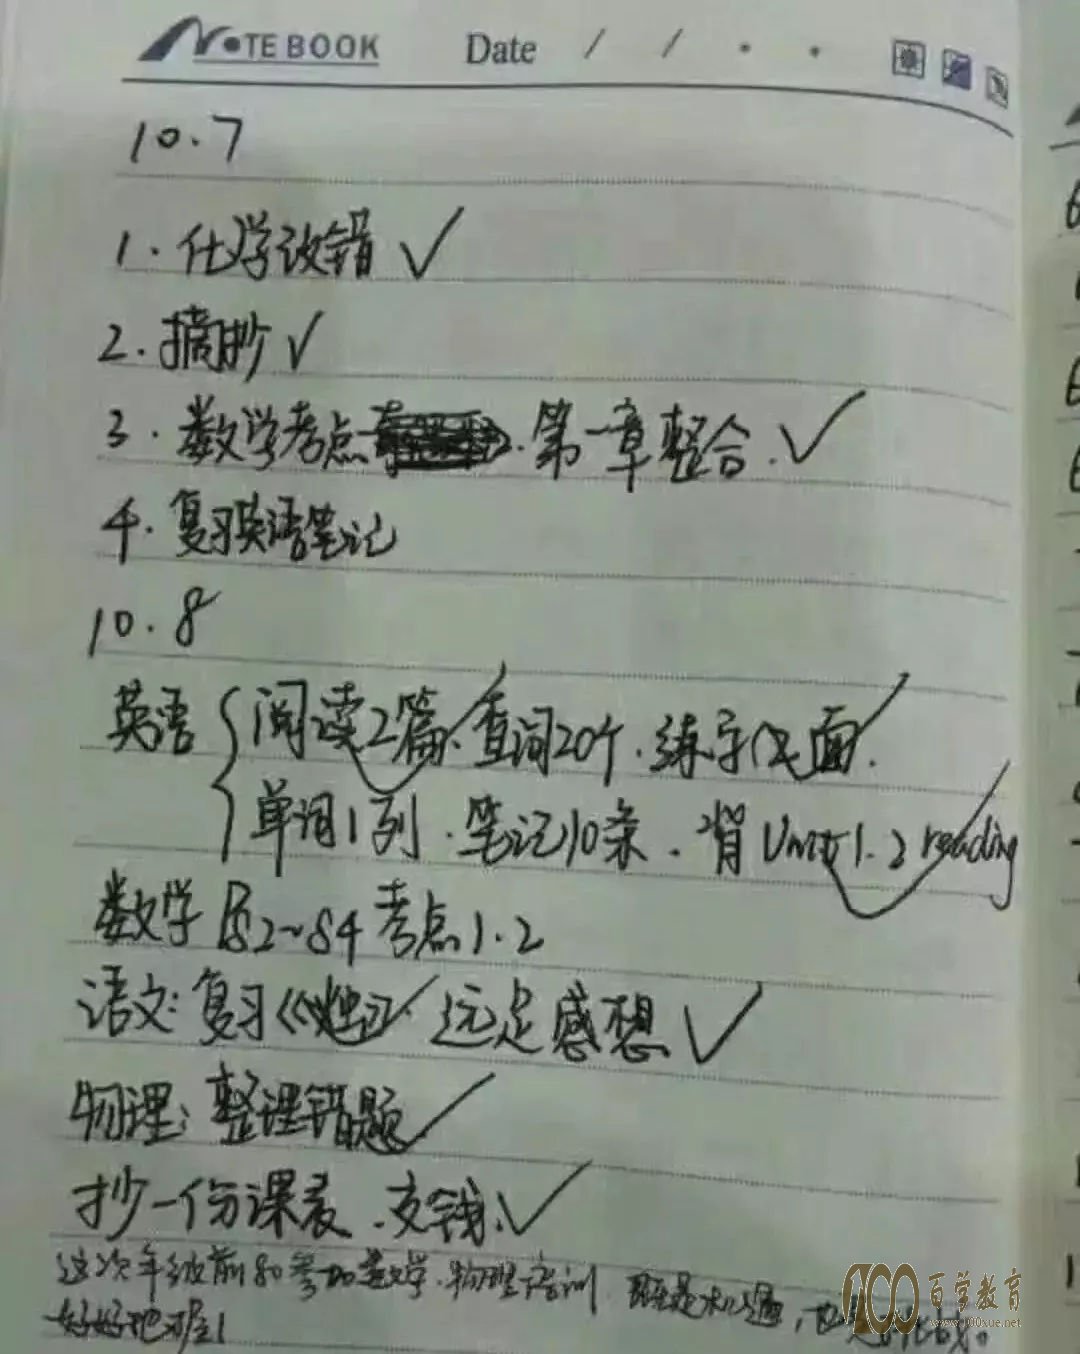 NOTEBOOK Date / / · ·
10.7
1. 化学改错 ✓
2. 摘抄 ✓
3. 数学考点 . 第一章整合. ✓
4. 复习英语笔记
10.8
英语 { 阅读2篇、查词20个. 练字 面.
单词1列. 笔记10条. 背Unit 1.2 reading
数学 P82~84 考点1.2
语文: 复习 远足感想 ✓
物理: 整理错题 ✓
抄一份课表. 交钱. ✓
这次年级前80参加数学.物理培训. 既是机遇, 也是挑战。
好好把握!
100 百学教育
www.100xue.net